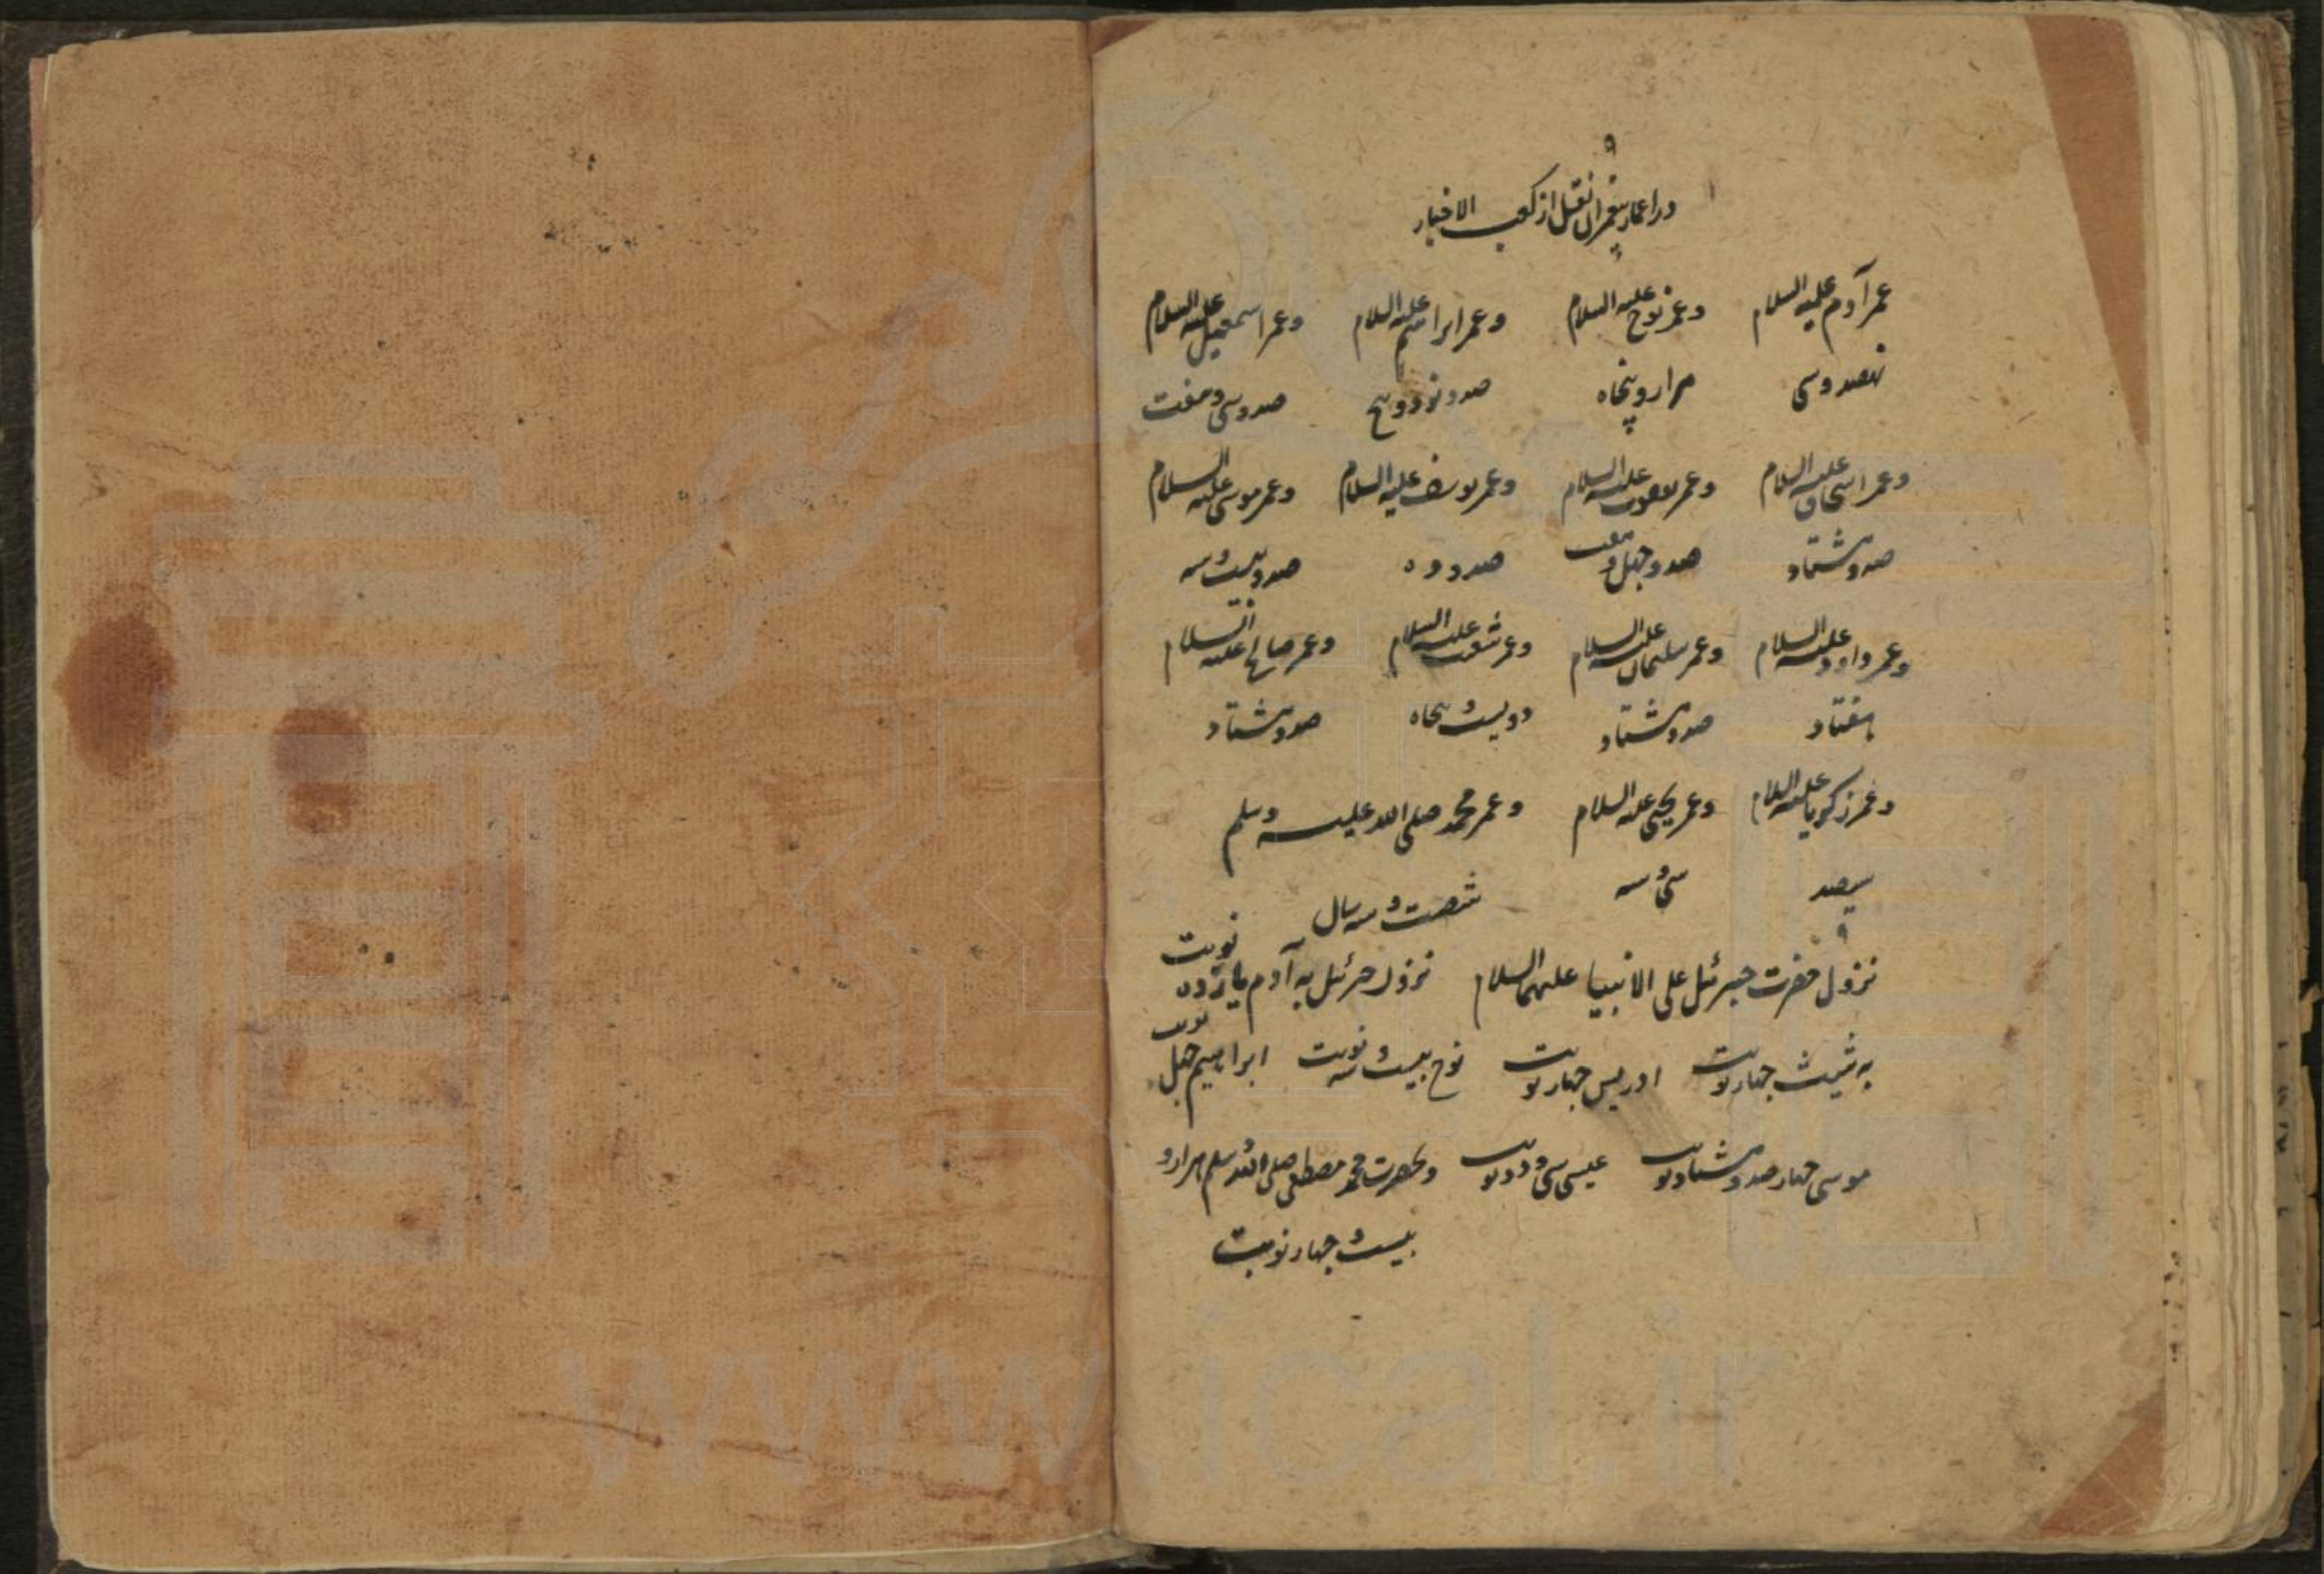 در اعمار پیغمبران نقل از کعب الاخبار
عمر آدم علیه السلام وعمر نوح علیه السلام وعمر ابراهیم علیه السلام وعمر اسمعیل علیه السلام
نهصد وسی هزار و پنجاه صد و نود و پنج صد و سی و هفت
وعمر اسحاق علیه السلام وعمر یعقوب علیه السلام وعمر یوسف علیه السلام وعمر موسی علیه السلام
صد و هشتاد صد و چهل و هفت صد و ده صد و بیست و سه
وعمر داود علیه السلام وعمر سلیمان علیه السلام وعمر شعیب علیه السلام وعمر صالح علیه السلام
هفتاد صد و هشتاد دویست و پنجاه صد و هشتاد
وعمر زکریا علیه السلام وعمر یحیی علیه السلام وعمر محمد صلی الله علیه وسلم
سیصد سی و سه شصت و سه سال
نزول حضرت جبرئیل علی الانبیا علیهم السلام نزول جبرئیل به آدم یازده نوبت
به شیث چهار نوبت ادریس چهار نوبت نوح بیست و سه نوبت ابراهیم چهل نوبت
موسی چهار صد و هشتاد نوبت عیسی سی و دو نوبت و بحضرت محمد مصطفی صلی الله وسلم هزار و
بیست و چهار نوبت
www.ical.ir